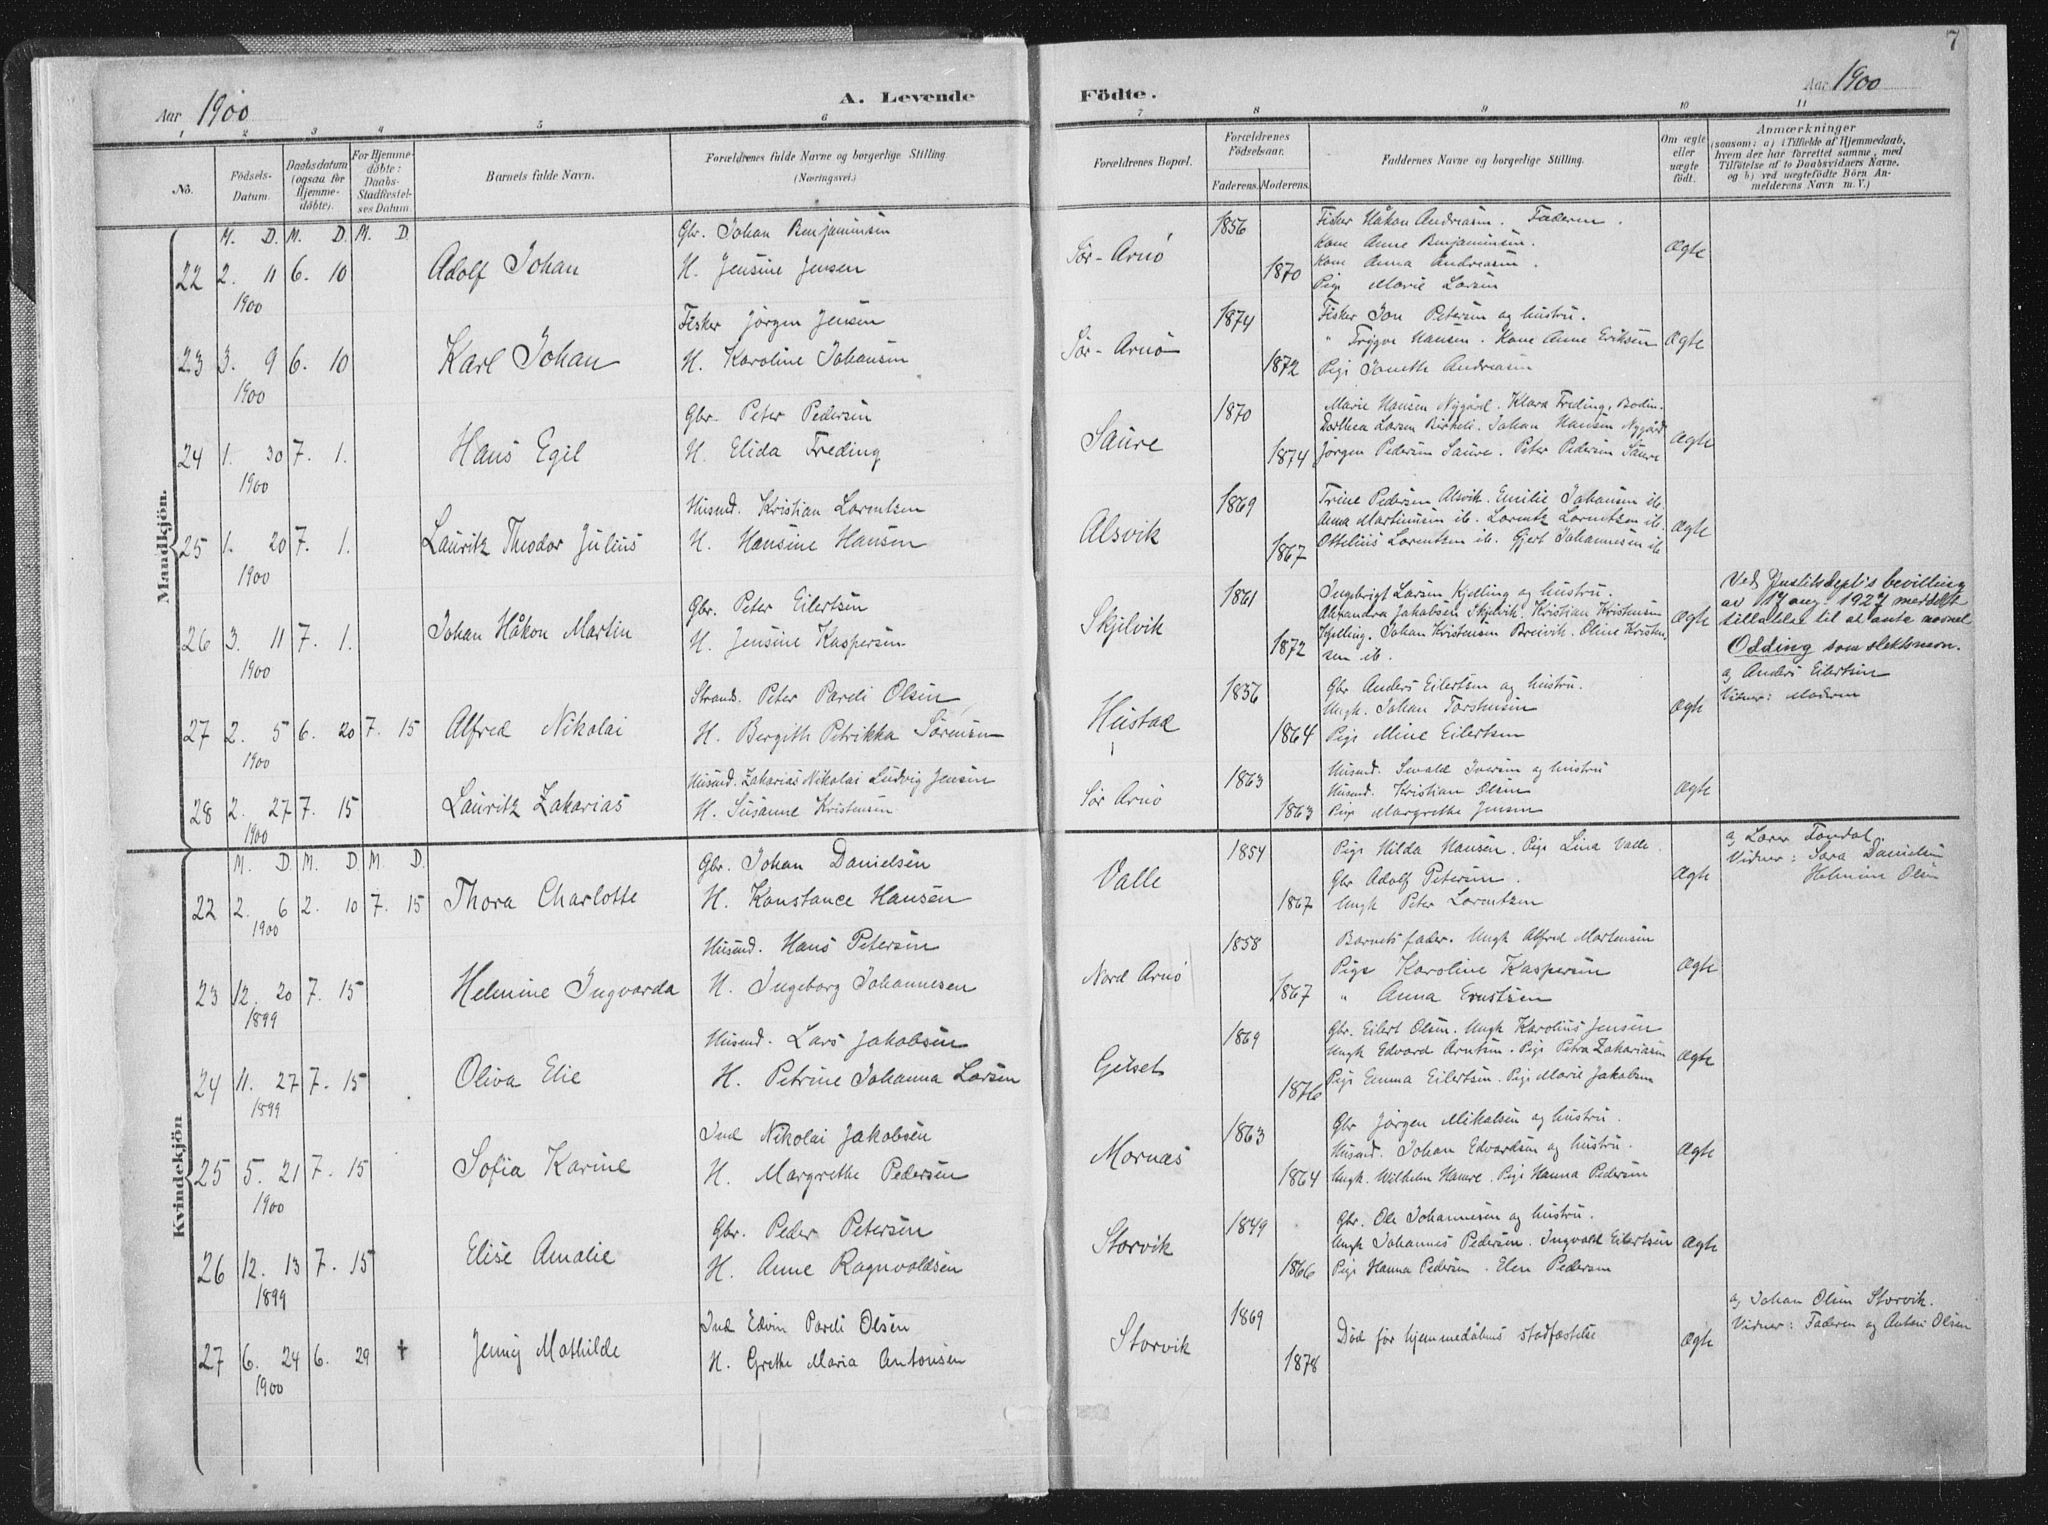 7
Aar 1900
A. Levende
Födte.
Aar 1900
1 2 3 4 5 6 7 8 9 10 11
No.
Födsels-
Datum.
Daabsdatum
(ogsaa for
Hjemme-
döbte).
For Hjemme-
döbte:
Daabs-
Stadfæstel-
ses Datum.
Barnets fulde Navn.
Forældrenes fulde Navne og borgerlige Stilling
(Næringsvei.)
Forældrenes Bopæl.
Forældrenes
Födselsaar.
Faderens. Moderens.
Faddernes Navne og borgerlige Stilling.
Om ægte
eller
uægte
födt.
Anmærkninger
(saasom: a) i Tilfælde af Hjemmedaab,
hvem der har forrettet samme, med
Tilföielse af to Daabsvidners Navne.
og b) ved uægtefödte Börn An-
melderens Navn m. V.)
Mandkjön.
M. D. M. D. M. D.
22 2. 11 6. 10
1900
Adolf Johan
Gbr. Johan Benjaminsen
H. Jensine Jensen
Sør-Arnø
1856
1870
Fisker Håkon Andreasen. Faderen.
Kone Anne Benjaminsen.
Kone Anna Andreasen.
Pige Marie Larsen
Ægte
23 3. 9 6. 10
1900
Karl Johan
Fisker Jørgen Jensen
H. Karoline Johansen
Sør-Arnø
1874
1872
Fisker Jon Petersen og hustru.
" Trygve Hansen. Kone Anne Eriksen
Pige Janeth Andreasen
Ægte
24 1. 30 7. 1.
1900
Hans Egil
Gbr. Peter Pedersen
H. Elida Freding
Saure
1870
1874
Marie Hansen Nygård. Klara Freding, Bodin.
Dorthea Larsen Birkeli. Johan Hansen Nygård
Jørgen Pedersen Saure. Peter Pedersen Saure
Ægte
25 1. 20 7. 1.
1900
Lauritz Theodor Julius
Husmd. Kristian Lorentsen
H. Hansine Hansen
Alsvik
1869
1867
Trine Pedersen Alsvik. Emilie Johansen ib.
Anna Martinusen ib. Lorentz Lorentsen ib.
Ottelius Lorentsen ib. Gjert Johannesen ib
Ægte
26 3. 11 7. 1.
1900
Johan Håkon Martin
Gbr. Peter Eilertsen
H. Jensine Kaspersen
Skjelvik
1861
1872
Ingebrigt Larsen Kjelling og hustru.
Alexandra Jakobsen Skjelvik. Kristian Kristensen
Kjelling. Johan Kristensen Breivik. Oline Kristen-
sen ib.
Ægte
Ved Justitsdept's bevilling
av 17 aug. 1927 meddelt
tillatelse til at anta navnet
Odding som slektsnavn.
27 2. 5 6. 20 7. 15
1900
Alfred Nikolai
Strand. Peter Pareli Olsen
H. Bergith Petrikka Sørensen
Hustad
1836
1864
Gbr Anders Eilertsen og hustru.
Ungk. Johan Torstensen
Pige Mine Eilertsen
Ægte
a, Anders Eilertsen
Vidner: Moderen
28 2. 27 7. 15
1900
Lauritz Zakarias
Husmd. Zakarias Nikolai Ludvig Jensen
H. Susanne Kristensen
Sør Arnø
1863
1863
Husmd. Sevald Iversen og hustru
Husmd. Kristian Olsen
Pige Margrethe Jensen
Ægte
Kvindekjön
M. D. M. D. M. D.
22 2. 6 2. 10 7. 15
1900
Thora Charlotte
Gbr. Johan Danielsen
H. Konstance Hansen
Valle
1854
1867
Pige Hilda Hansen. Pige Lina Valle.
Gbr Adolf Petersen.
Ungk Peter Lorentsen
Ægte
a, Lærer Tondal.
Vidner: Sara Danielsen
Helmine Olsen
23 12. 20 7. 15
1899
Helmine Ingvarda
Husmd. Hans Petersen
H. Ingeborg Johannesen
Nord Arnø
1858
1867
Barnets fader. Ungk Alfred Mortensen
Pige Karoline Kaspersen
" Anna Ernstsen
Ægte
24 11. 27 7. 15
1899
Oliva Elie
Husmd. Lars Jakobsen
H. Petrine Johanna Larsen
Gilset
1869
1876
Gbr. Eilert Olsen. Ungk Karolius Jensen
Ungk Edvard Arntsen. Pige Petra Zakariasen
Pige Emma Eilertsen. Pige Marie Jakobsen
Ægte
25 5. 21 7. 15
1900
Sofia Karine
Ind Nikolai Jakobsen
H. Margrethe Pedersen
Mornæs
1863
1864
Gbr Jørgen Mikalsen og hustru.
Husmd. Johan Edvardsen og hustru.
Ungk. Wilhelm Hamre. Pige Hanna Pedersen
Ægte
26 12. 13 7. 15
1899
Elise Amalie
Gbr. Peder Petersen
H. Anne Ragnvaldsen
Storvik
1849
1866
Gbr. Ole Johannesen og hustru.
Ungk Johannes Pedersen. Ingvald Eilertsen
Pige Hanna Pedersen. Elen Pedersen
Ægte
27 6. 24 6. 29 †
1900
Jenny Mathilde
Ind Edvin Pareli Olsen
H. Grethe Maria Antonsen
Storvik
1869
1878
Død før hjemmedåbens stadfæstelse
Ægte
a, Johan Olsen Storvik.
Vidner: Faderen og Antoni Olsen